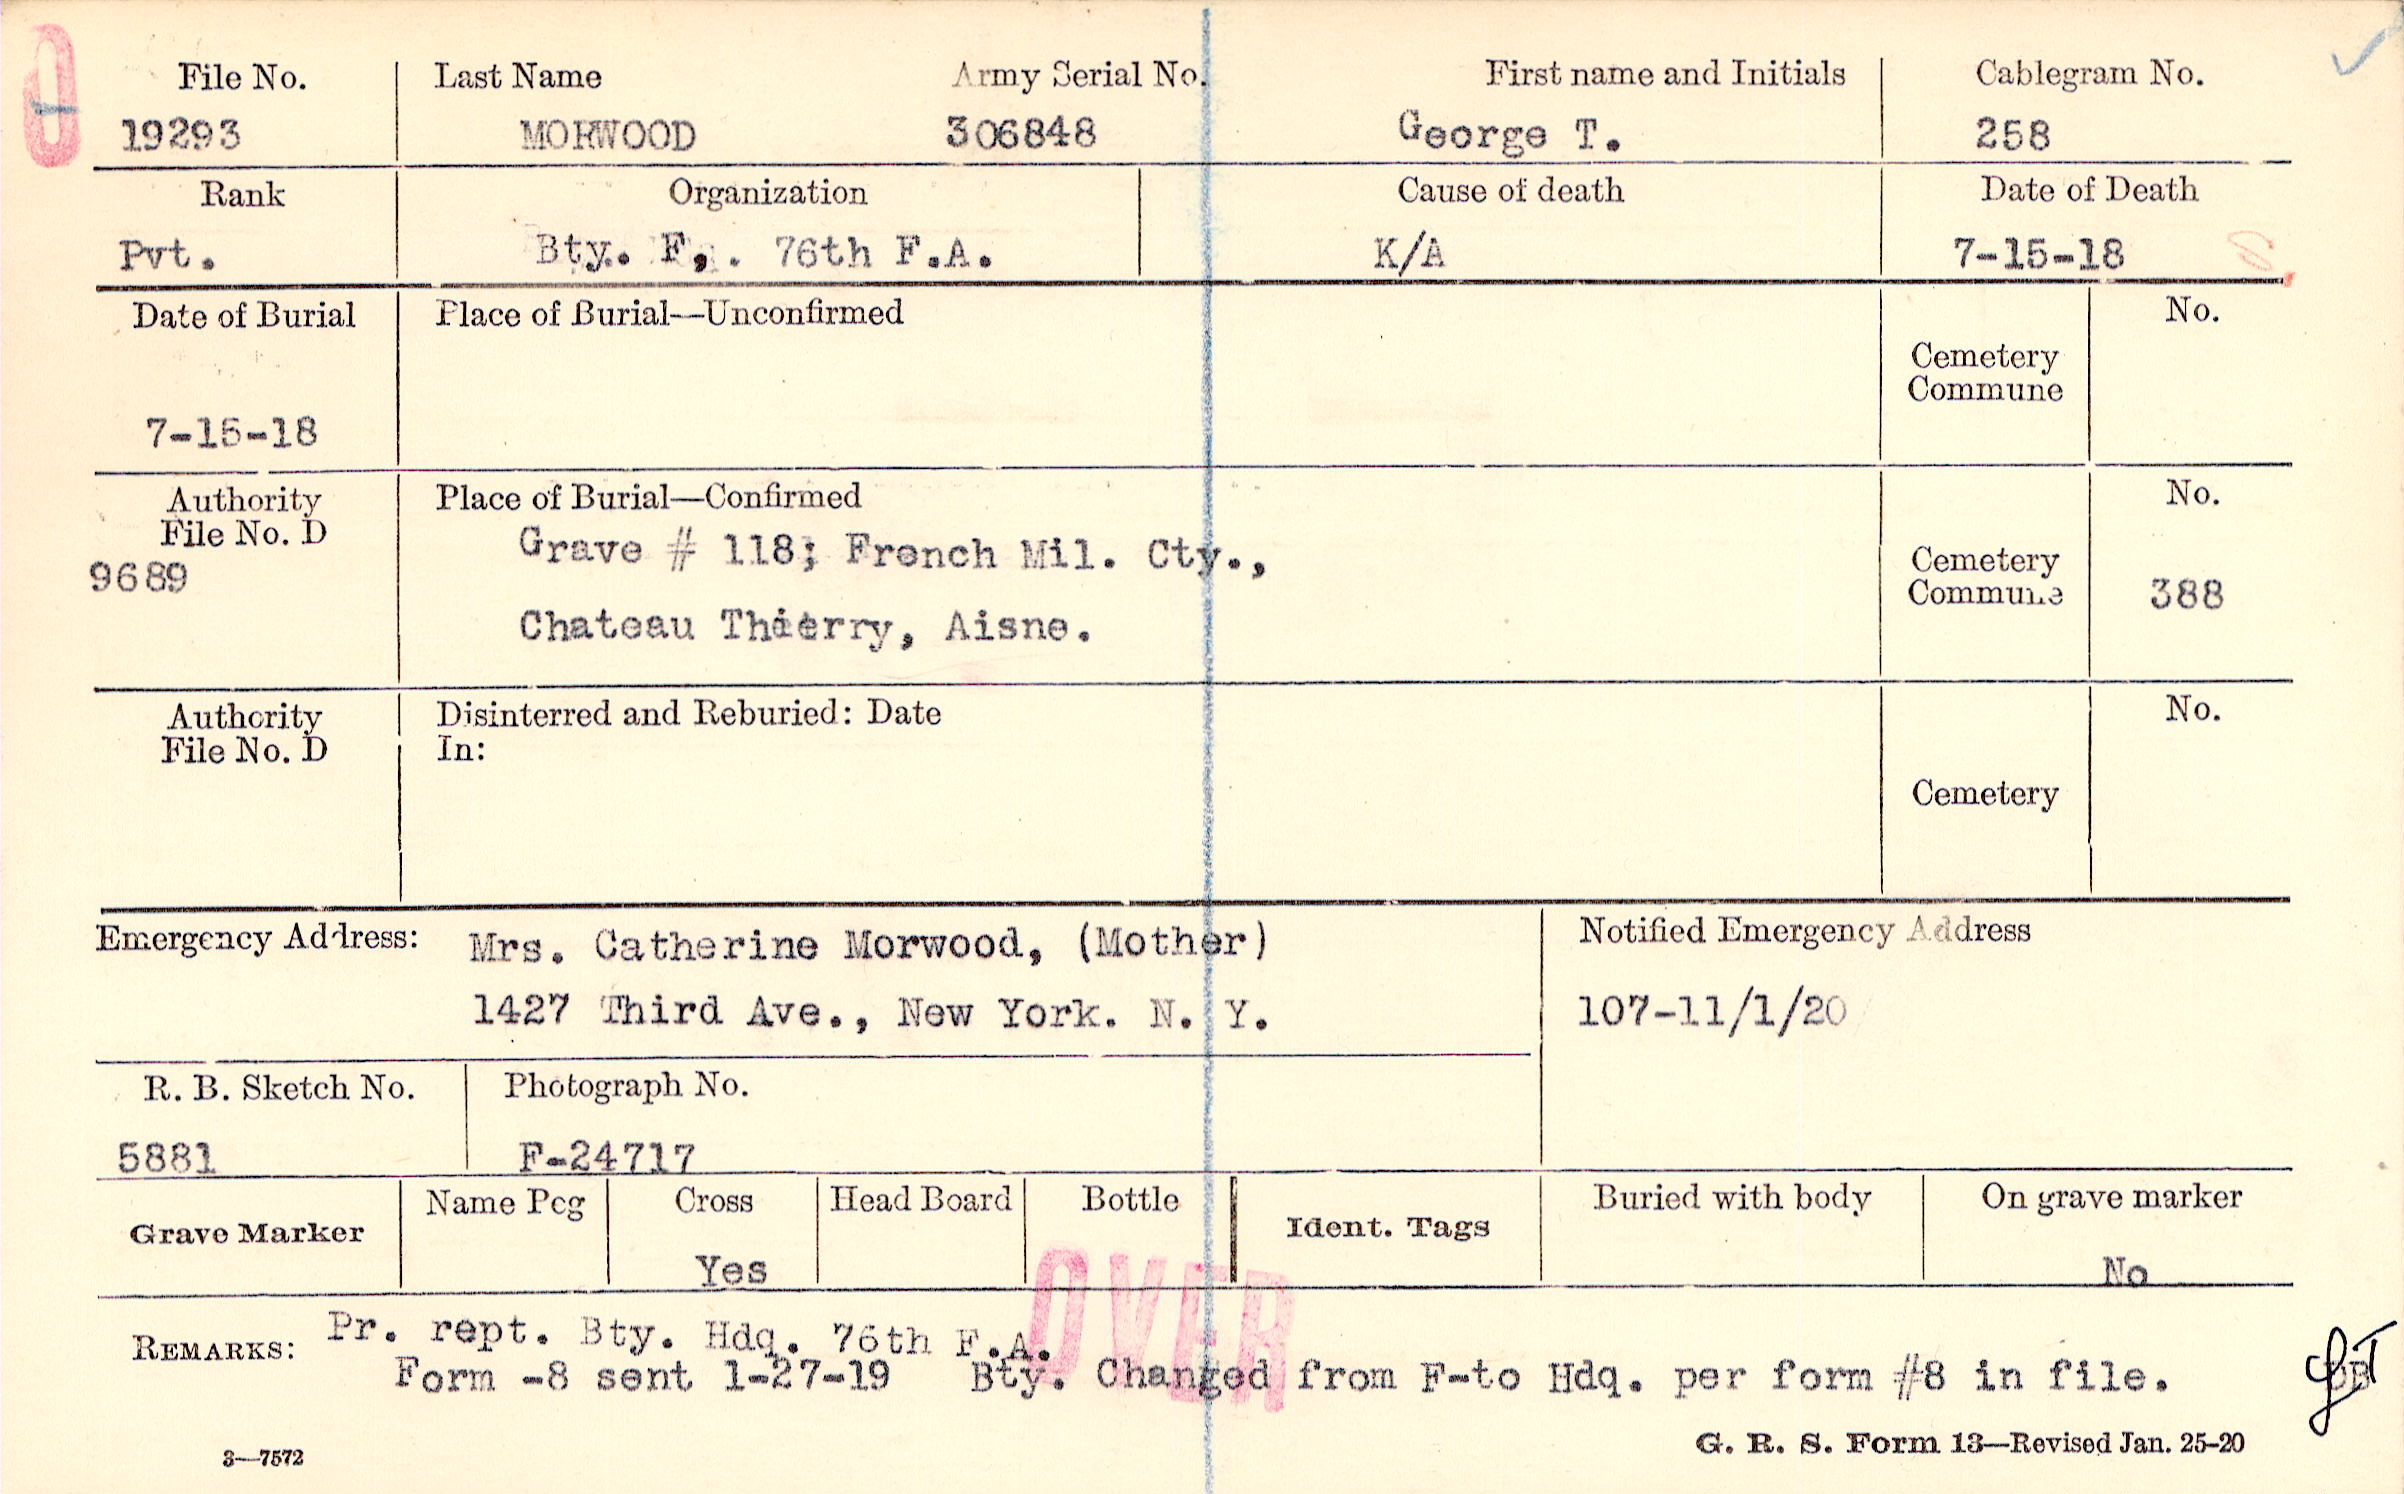 File No. Last Name Army Serial No. First name and Initials Cablegram No.
19293 MORWOOD 306848 George T. 258
Rank Organization Cause of death Date of Death
Pvt. Bty. F, . 76th F.A. K/A 7-15-18
Date of Burial Place of Burial—Unconfirmed No.
Cemetery
Commune
7-15-18
Authority Place of Burial—Confirmed No.
File No. D Grave # 118; French Mil. Cty.,
9689 Cemetery
Commune 388
Chateau Thierry, Aisne.
Authority Disinterred and Reburied: Date No.
File No. D In:
Cemetery
Emergency Address: Mrs. Catherine Morwood, (Mother) Notified Emergency Address
1427 Third Ave., New York. N. Y. 107-11/1/20
R. B. Sketch No. Photograph No.
5881 F-24717
Grave Marker Name Peg Cross Head Board Bottle Ident. Tags Buried with body On grave marker
Yes No
OVER
REMARKS: Pr. rept. Bty. Hdq. 76th F.A.
Form -8 sent 1-27-19 Bty. Changed from F-to Hdq. per form #8 in file.
3—7572 G. R. S. Form 13—Revised Jan. 25-20